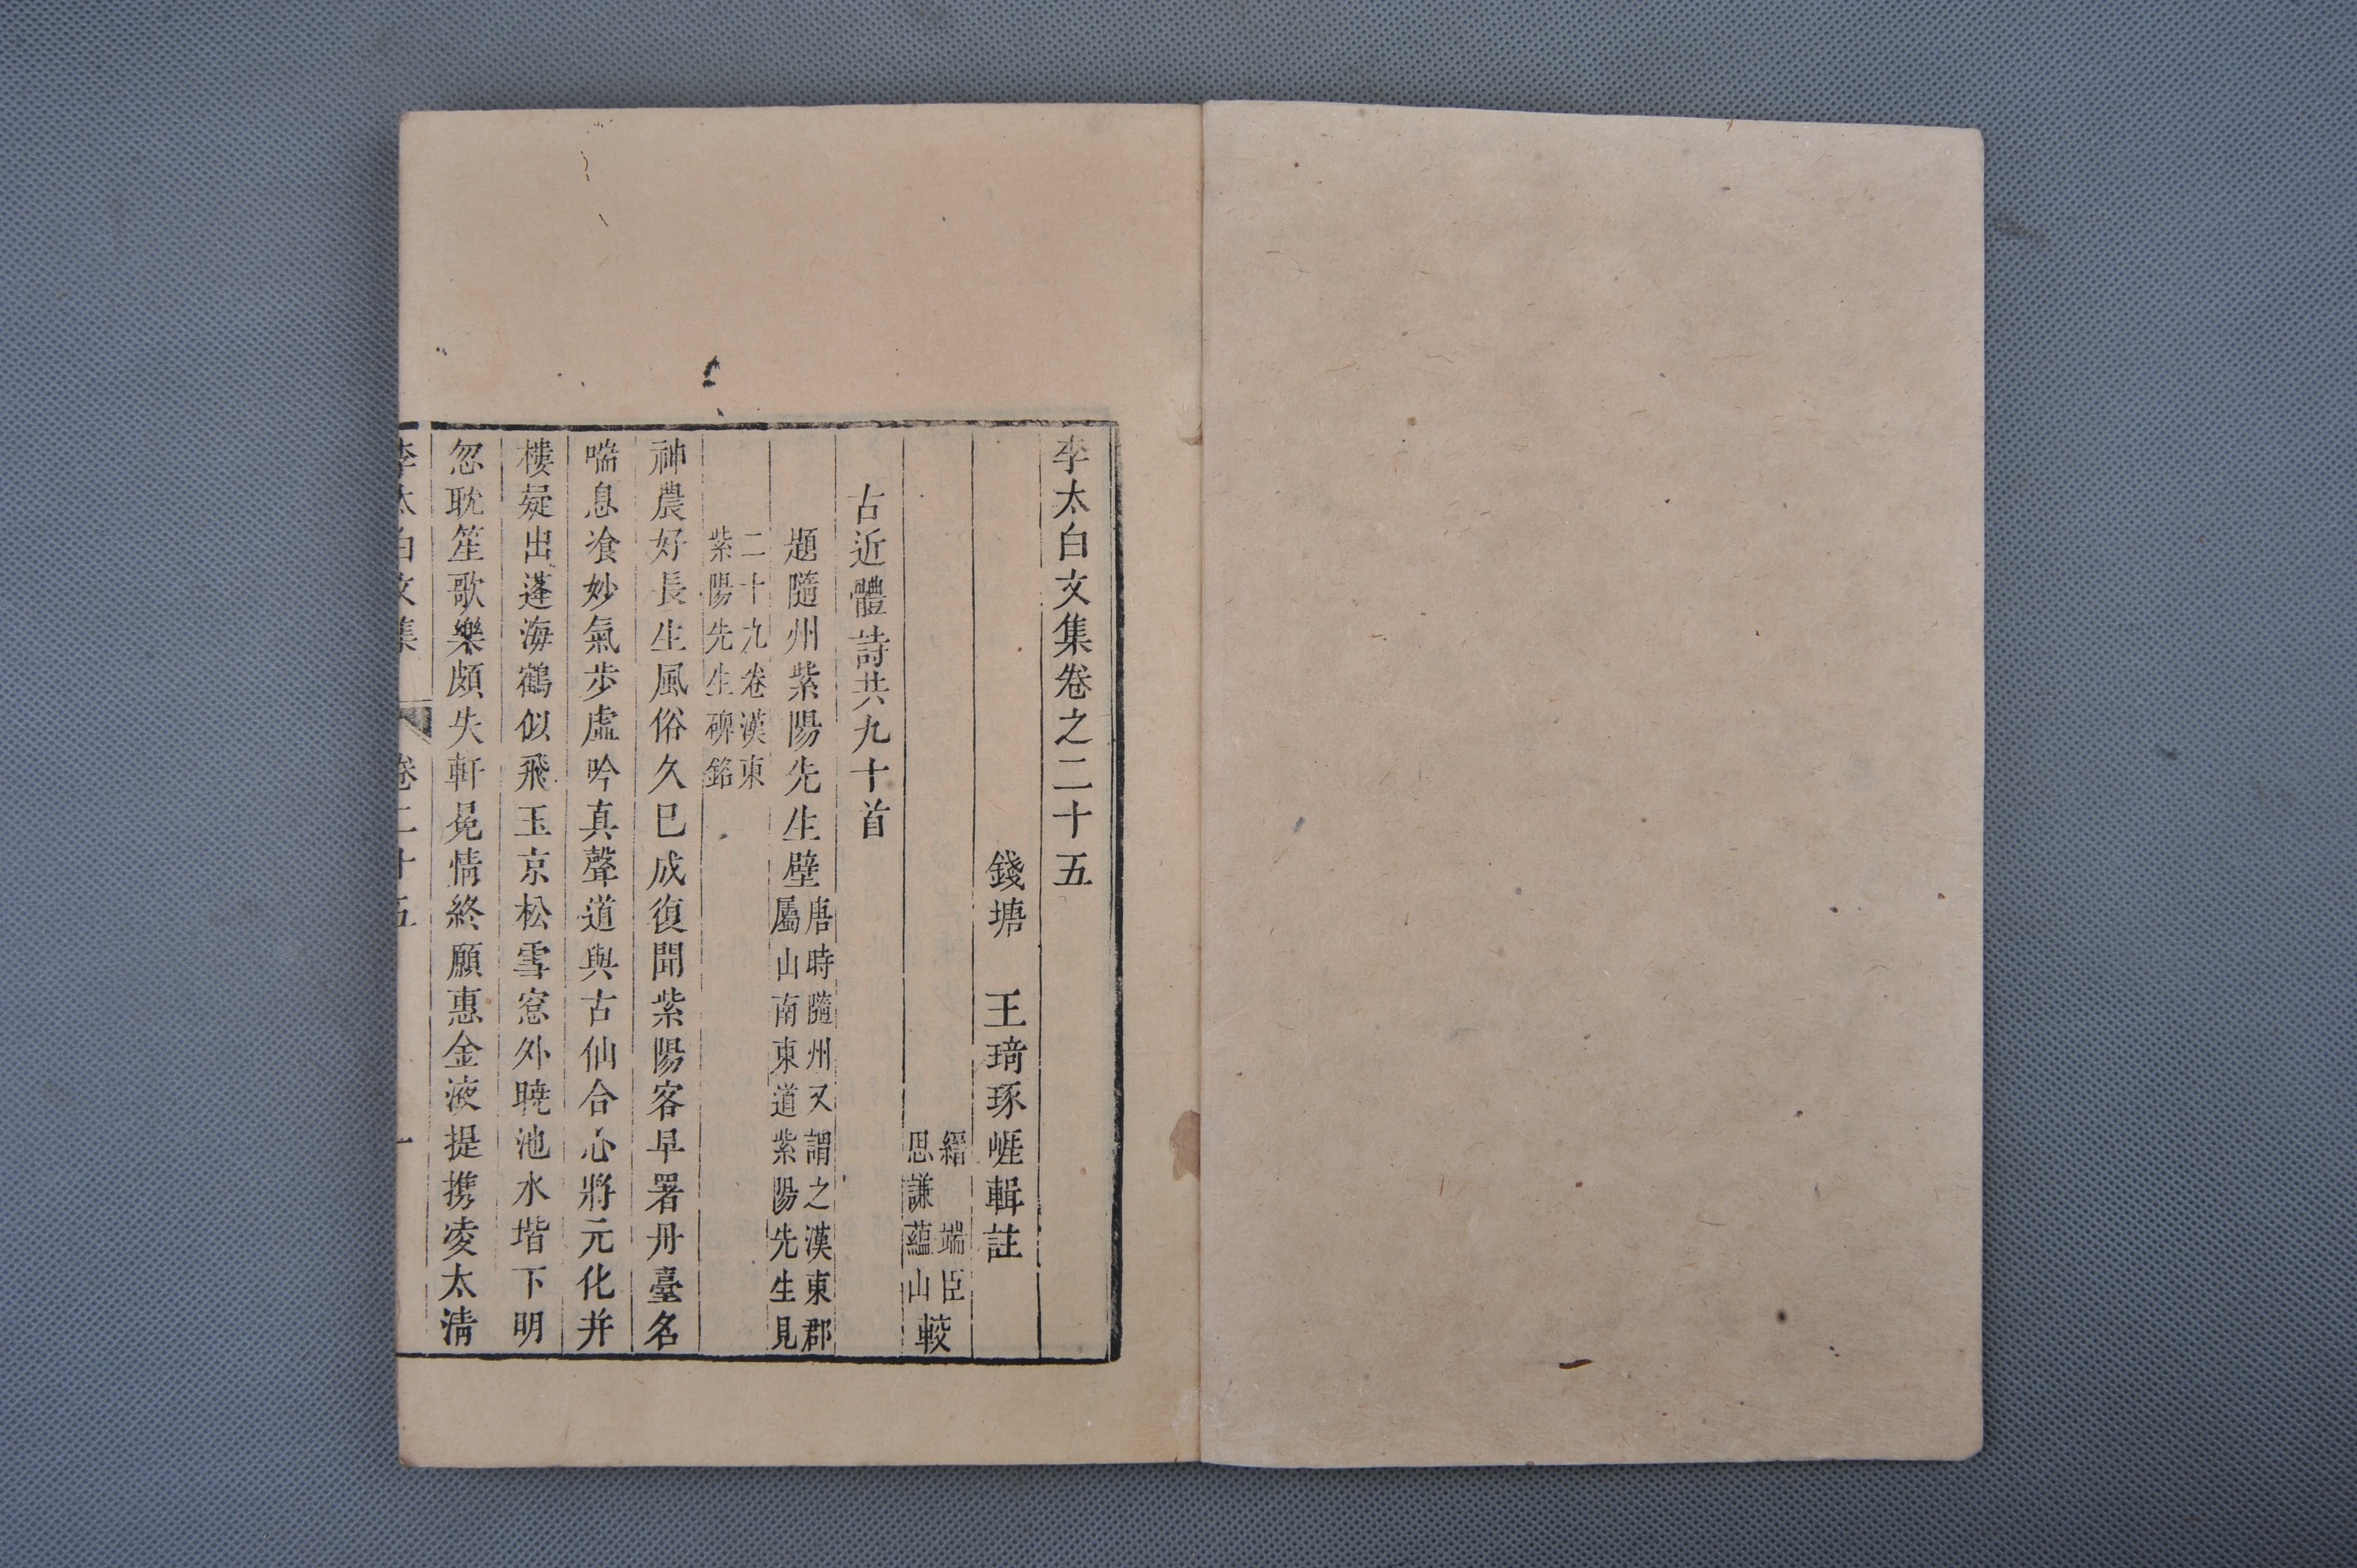 李太白文集卷之二十五
錢塘　王琦琢崖輯註
縉　端臣
思謙蘊山
較
古近體詩共九十首
題隨州紫陽先生壁
唐時隨州又謂之漢東郡
屬山南東道紫陽先生見
二十九卷漢東
紫陽先生碑銘
神農好長生風俗久已成復聞紫陽客早署丹臺名
喘息飡妙氣步虛吟真聲道與古仙合心將元化并
樓疑出蓬海鶴似飛玉京松雪窓外曉池水堦下明
忽耽笙歌樂頗失軒冕情終願惠金液提携凌太清
李太白文集　卷二十五　一